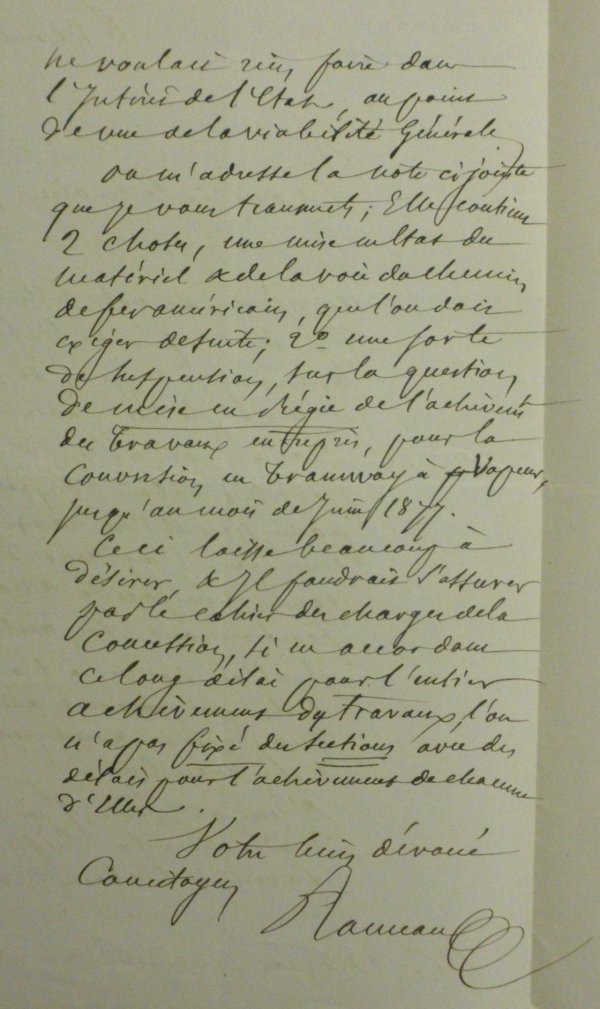 ne voulait rien faire dans
l'Intérêt de l'Etat, au point
de vue de la viabilité Générale,
on m'adresse la note ci jointe
que je vous transmets ; Elle contient
2 choses, une mise en état du
matériel & de la voie du chemin
de fer américain, que l'on doit
exiger de suite ; 2º une sorte
de suspension, sur la question
de mise en Régie de l'achèvent
des travaux entrepris, pour la
Conversion en Tramway à Vapeur,
jusqu'au mois de Juin 1877.
Ceci laisse beaucoup à
désirer, & Il faudrait s'assurer
par le cahier des charges de la
Concession, si en accordant
ce long délai pour l'entier
achèvement des travaux, l'on
n'a pas fixé des sections avec des
délais pour l'achèvement de chacune
d'Elles.
Votre bien dévoué
Concitoyen